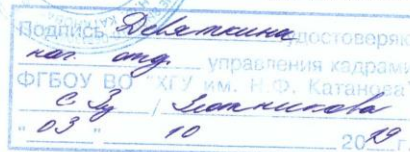 Подпись Девяткина удостоверяю
нач. отд. управления кадрами
ФГБОУ ВО "ХГУ им. Н.Ф. Катанова"
/
" 03 " 10 2019